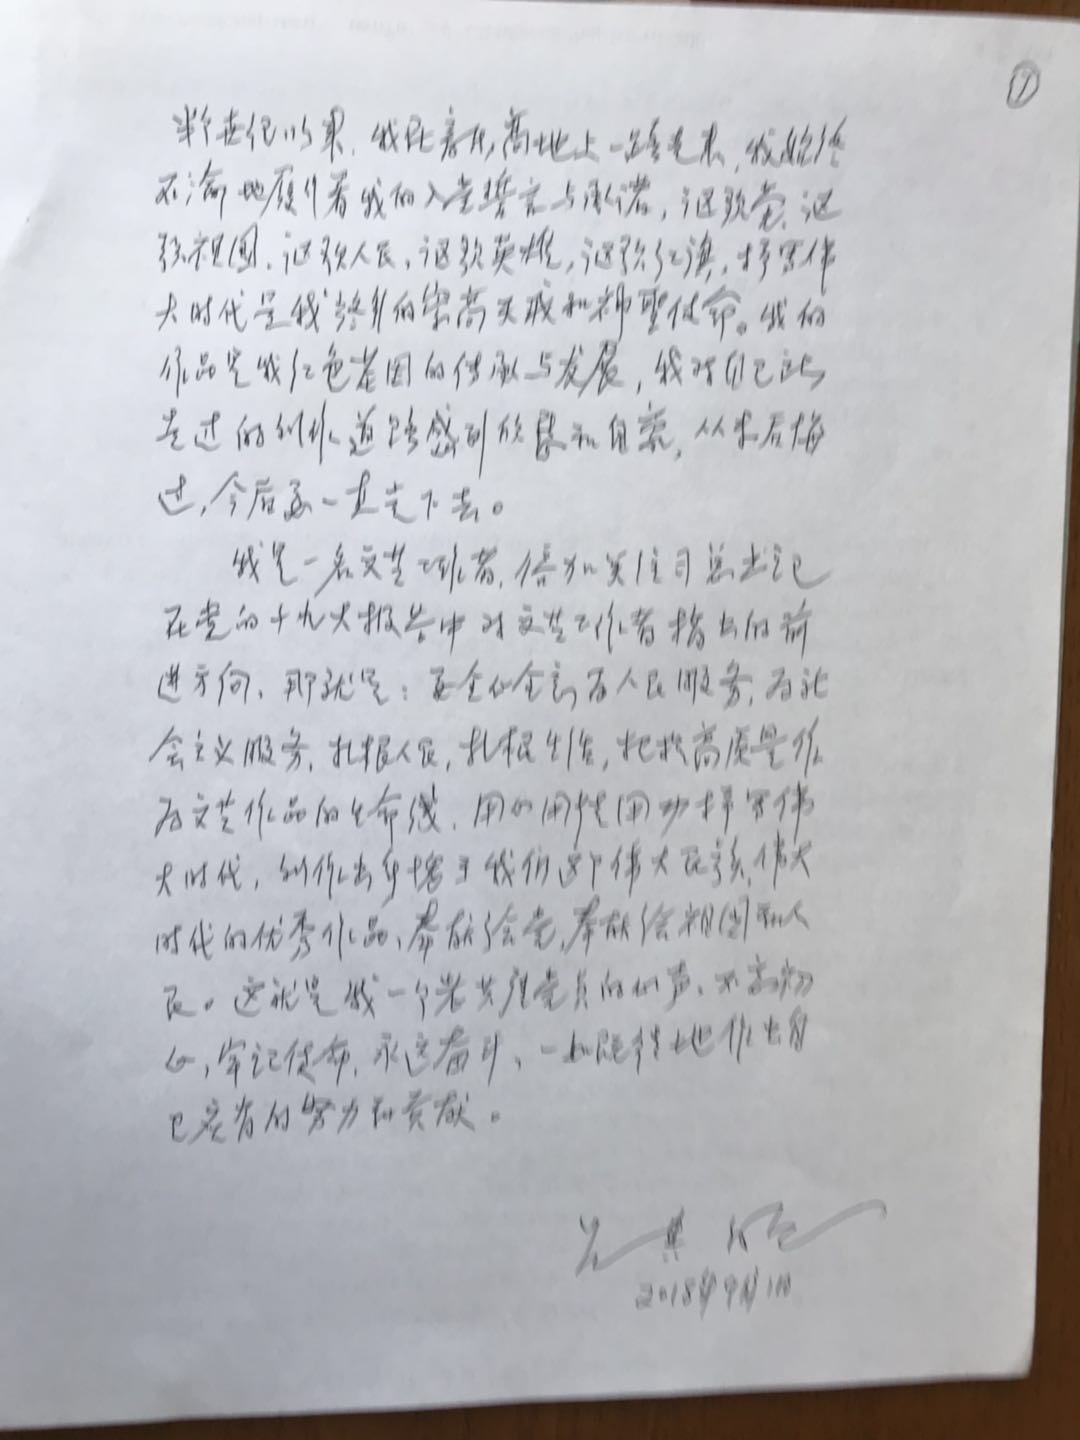 ⑦
半个世纪以来,我在音乐高地上一路走来,我始终
不渝地履行着我的入党誓言与承诺,讴歌党、讴
歌祖国、讴歌人民,讴歌英雄,讴歌红旗,抒写伟
大时代是我终身的崇高天职和神圣使命。我的
作品是我红色基因的传承与发展,我对自己所
走过的创作道路感到欣慰和自豪,从未后悔
过,今后还一直走下去。
我是一名文艺工作者,倍加关注习总书记
在党的十九大报告中对文艺工作者指出的前
进方向、那就是:要全心全意为人民服务,为社
会主义服务,扎根人民,扎根生活,把提高质量作
为文艺作品的生命线,用心用情用功抒写伟
大时代,创作出无愧于我们这个伟大民族、伟大
时代的优秀作品,奉献给党,奉献给祖国和人
民。这就是我一个老共产党员的心声、不忘初
心,牢记使命,永远奋斗、一如既往地作出自
己应有的努力和贡献。
2018年9月1日